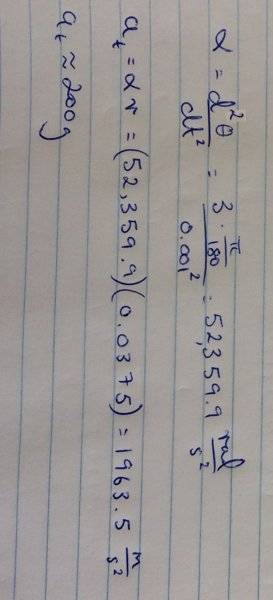 α = d²θ/dt² = 3 · π/180 / 0.001² = 52,359.9 rad/s²
a_t = α r = (52,359.9)(0.0375) = 1963.5 m/s²
a_t ≈ 200g